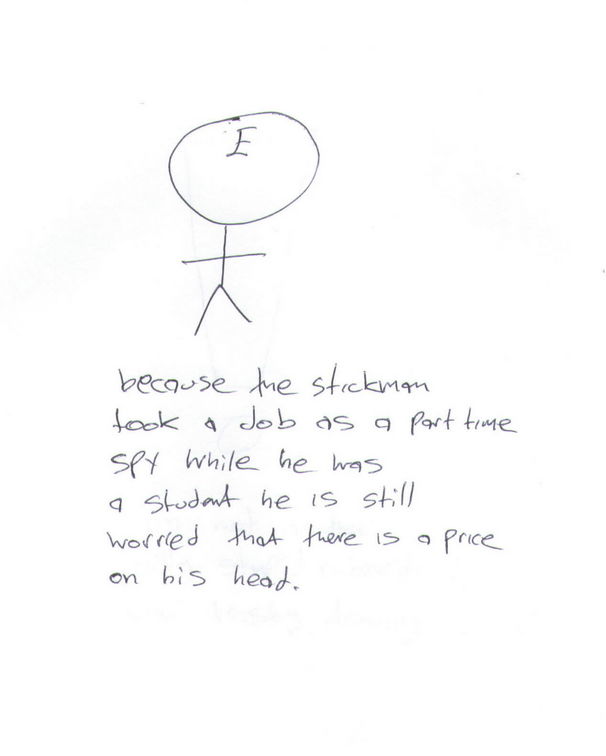 E
because the stickman
took a job as a part time
spy while he was
a student he is still
worried that there is a price
on his head.